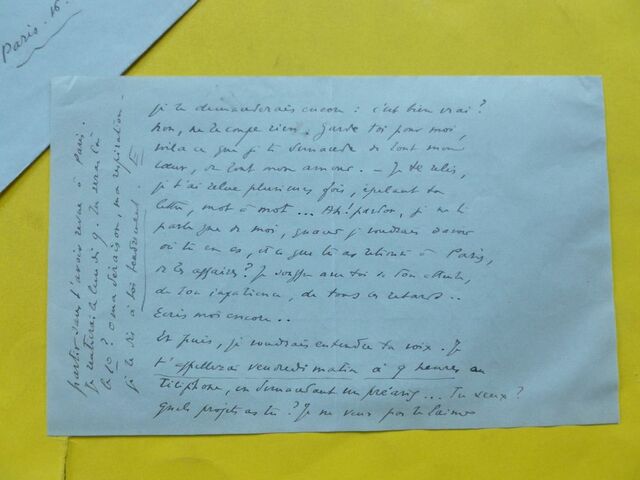 Paris. 16.
je te demanderais encore : c'est bien vrai ?
Non, ne te coupe rien. Garde toi pour moi,
voilà ce que je te demande de tout mon
cœur, de tout mon amour. – Je te relis,
je t'ai relue plusieurs fois, épelant ta
lettre, mot à mot... Ah! pardon, je ne te
parle que de moi, quand je voudrais savoir
où tu en es, et ce que tu as retenu à Paris,
et tes affaires ? Je souffre avec toi de ton attente,
de ton impatience, de tous ces retards..
Ecris moi encore..
Et puis, je voudrais entendre ta voix. Je
t'appellerai vendredi matin à 9 heures au
téléphone, en demandant un préavis... Tu veux ?
Quels projets as tu ? Je ne veux pas te laisser
partir sans t'avoir revue à Paris.
Je rentrerai le lundi 9. Tu seras là
le 10 ? O ma déraison, ma respiration –
je le dis à toi tendrement. E